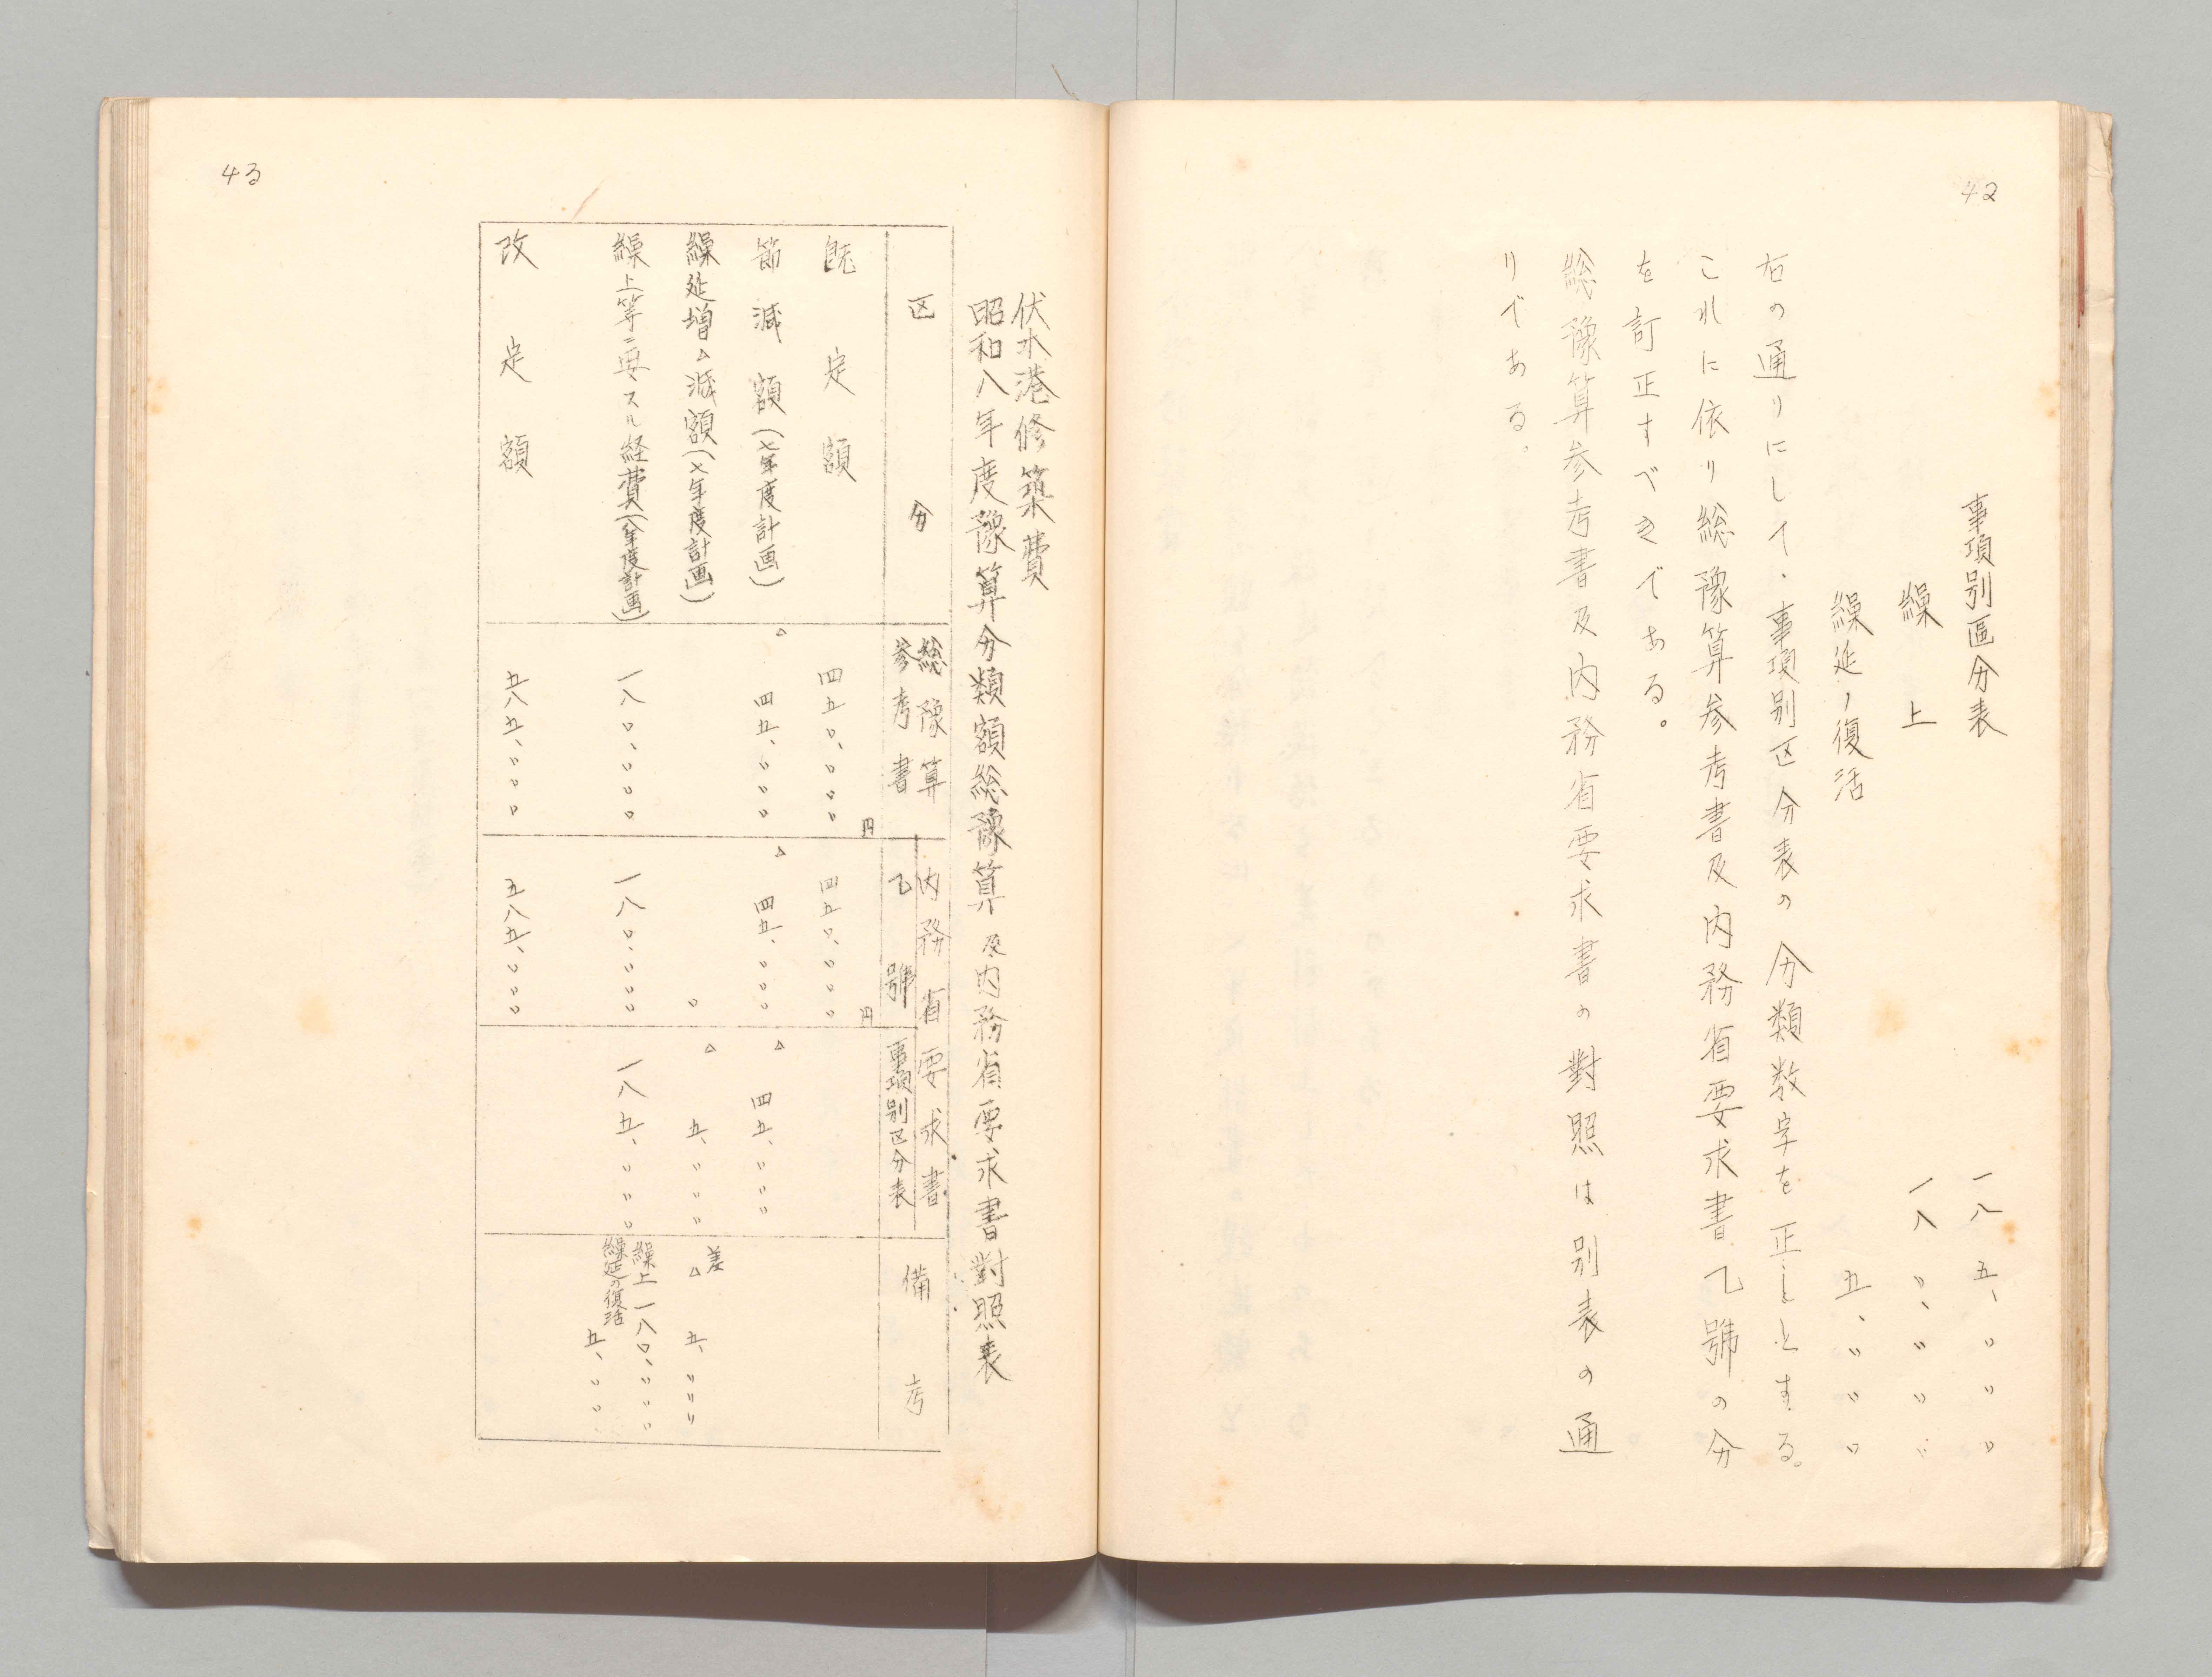 42
事項別區分表 一八五、〇〇〇
繰上 一八〇、〇〇〇
繰延ノ復活 五、〇〇〇
右の通りにして、事項別区分表の分類数字を正しとする。
これに依り総豫算参考書及内務省要求書乙號の分
を訂正すべきである。
総豫算参考書及内務省要求書の對照は別表の通
りである。
43
伏木港修築費
昭和八年度豫算分類額総豫算及内務省要求書對照表
区分
総豫算参考書
内務省要求書
乙號
事項別区分表
備考
既定額 四五〇、〇〇〇円 四五〇、〇〇〇円
節減額(七年度計画) △四五、〇〇〇 △四五、〇〇〇 △四五、〇〇〇
繰延増△減額(七年度計画) 〇 △五、〇〇〇 差△五、〇〇〇
繰上等ニ要スル経費(八年度計画) 一八〇、〇〇〇 一八〇、〇〇〇 一八五、〇〇〇 繰上一八〇、〇〇〇
繰延の復活五、〇〇〇
改定額 五八五、〇〇〇 五八五、〇〇〇